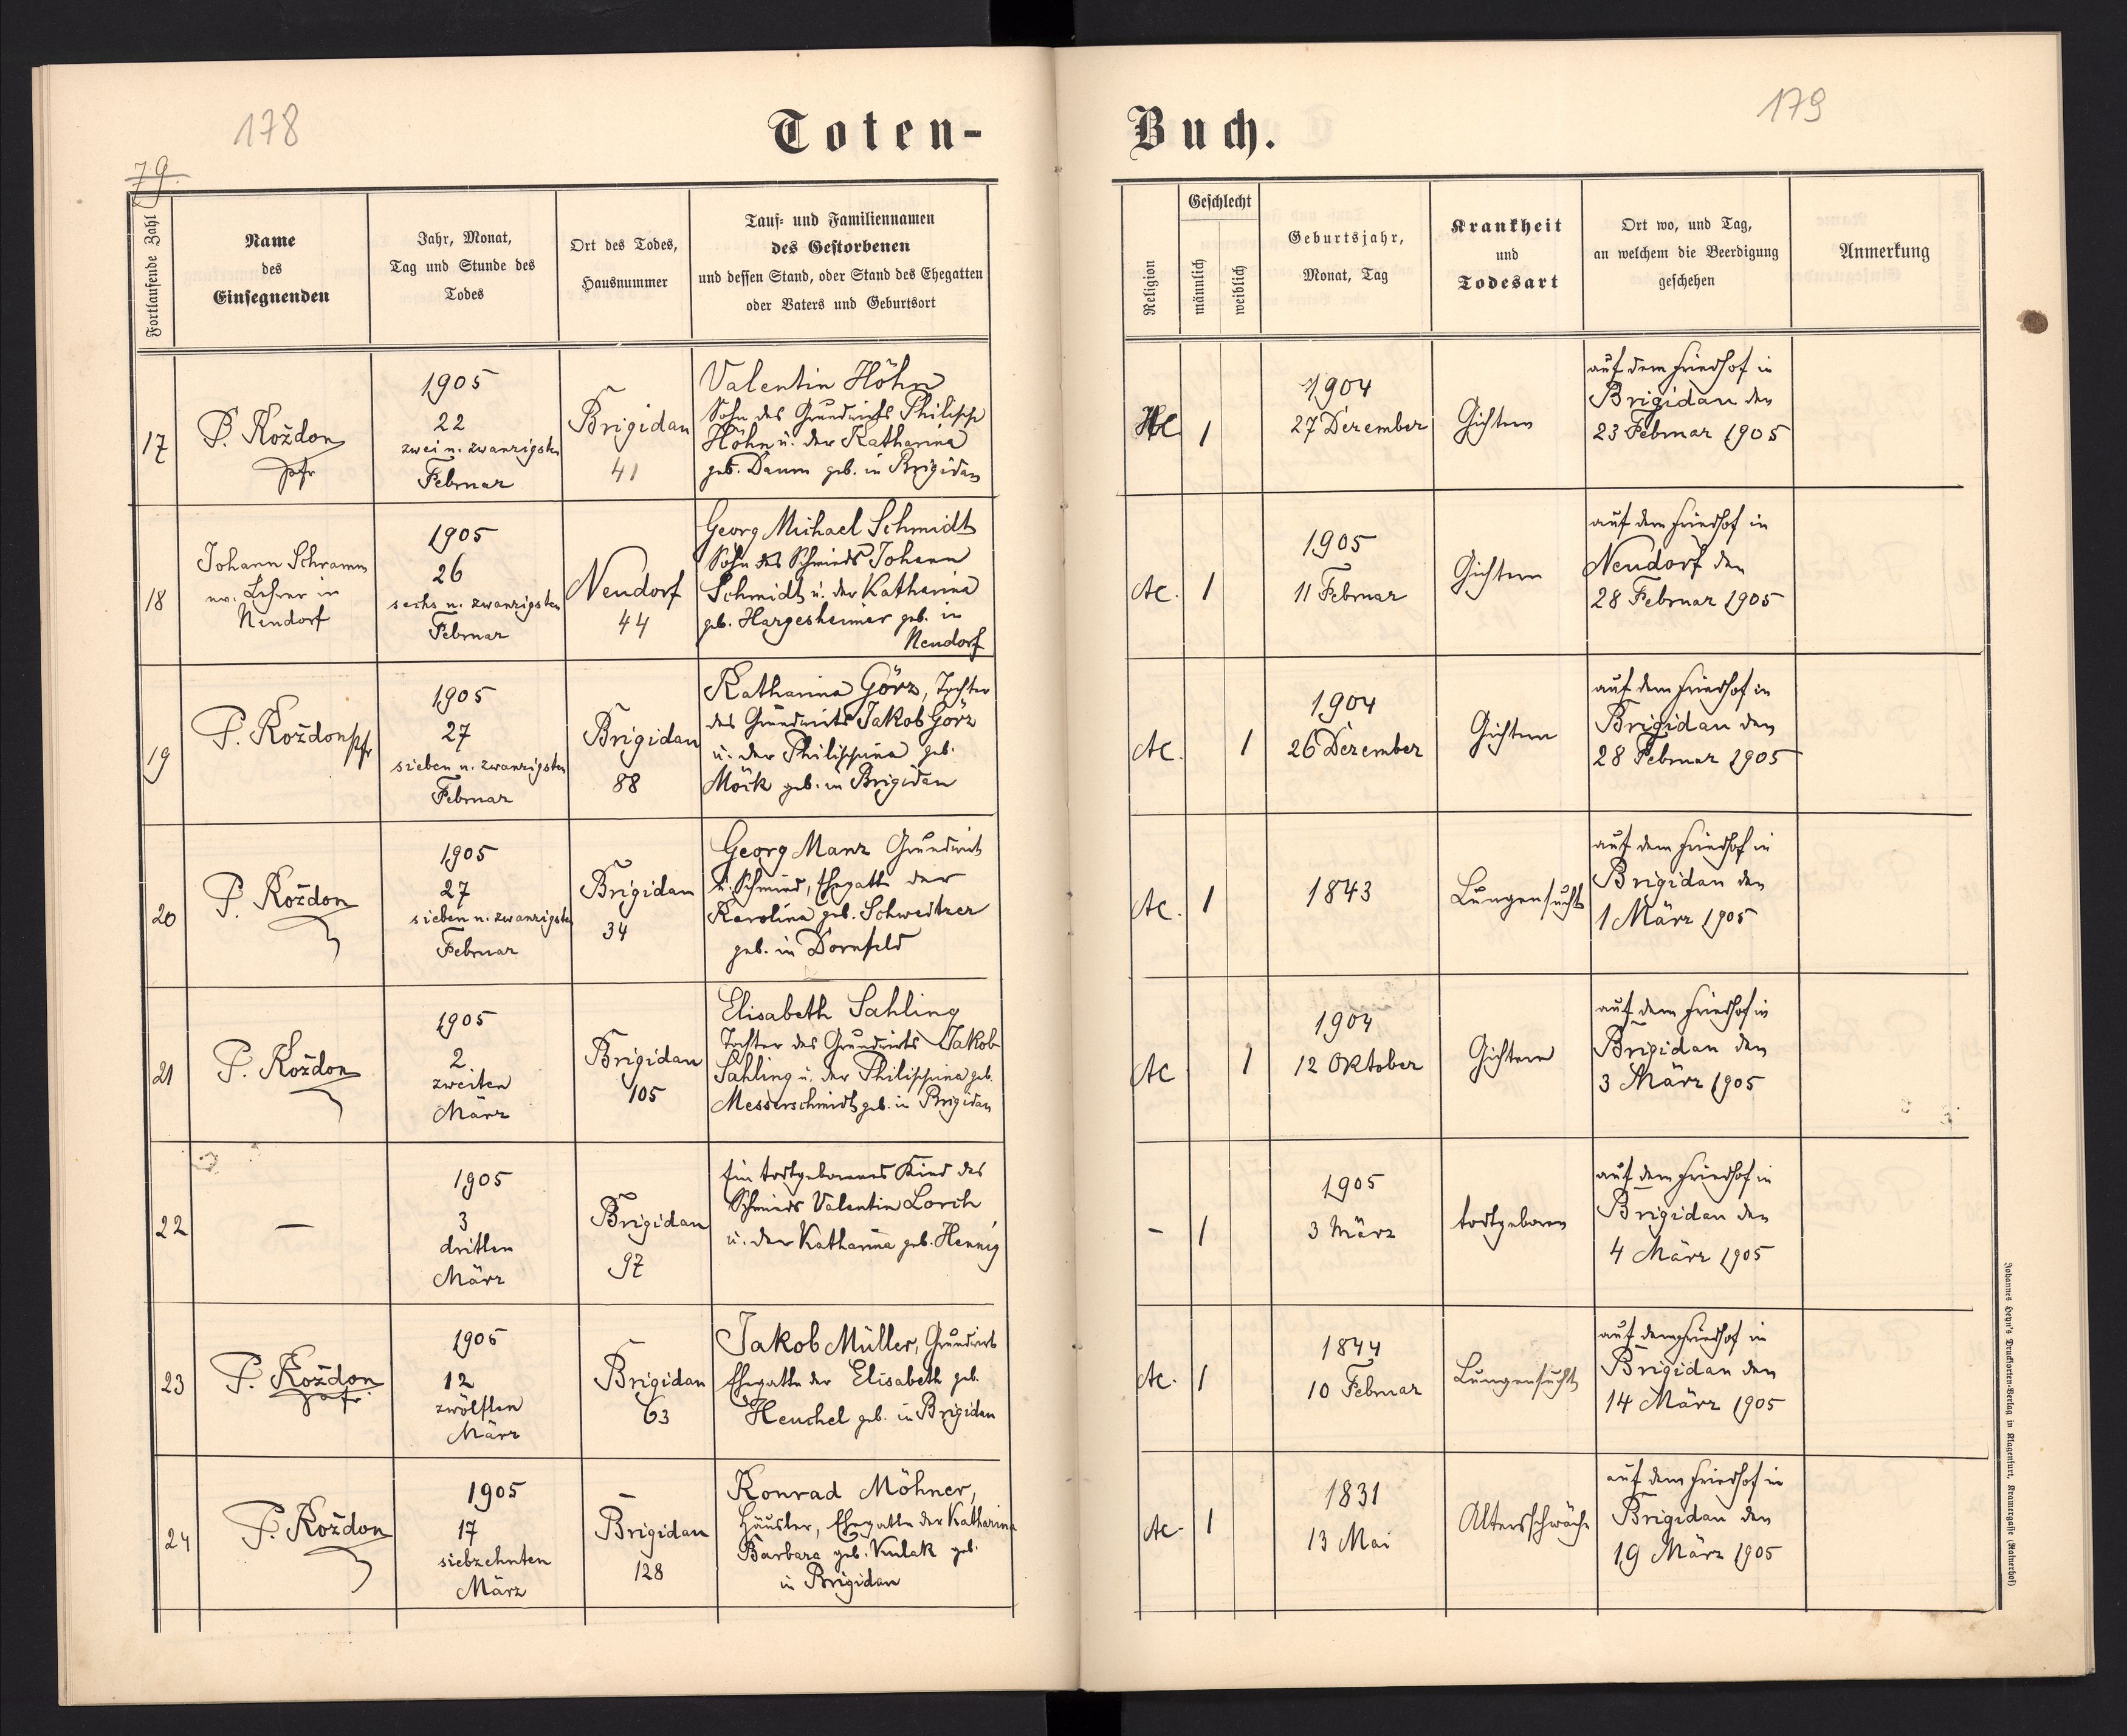 178
79.
Toten-
Fortlaufende Zahl
Name
des
Einsegnenden
Jahr, Monat,
Tag und Stunde des
Todes
Ort des Todes,
Hausnummer
Tauf- und Familiennamen
des Gestorbenen
und dessen Stand, oder Stand des Ehegatten
oder Vaters und Geburtsort
17
P. Koždon
pfr
1905
22
zwei u. zwanzigsten
Februar
Brigidau
41
Valentin Höhn
Sohn des Grundwirts Philipp
Höhn u. der Katharina
geb. Daum geb. in Brigidau
18
Johann Schramm
ev. Lehrer in
Neudorf
1905
26
sechs u. zwanzigsten
Februar
Neudorf
44
Georg Michael Schmidt
Sohn des Schmieds Johann
Schmidt u. der Katharina
geb. Hargesheimer geb. in
Neudorf
19
P. Koždon pfr
1905
27
sieben u. zwanzigsten
Februar
Brigidau
88
Katharina Görz, Tochter
des Grundwirts Jakob Görz
u. der Philippina geb.
Möck geb. in Brigidau
20
P. Koždon
1905
27
sieben u. zwanzigsten
Februar
Brigidau
34
Georg Manz Grundwirt
u. Schmied, Ehegatte der
Karolina geb. Schweitzer
geb. in Dornfeld
21
P. Koždon
1905
2
zweiten
März
Brigidau
105
Elisabeth Sahling
Tochter des Grundwirts Jakob
Sahling u. der Philippina geb.
Messerschmidt geb. in Brigidau
22
—
1905
3
dritten
März
Brigidau
97
Ein todtgeborenes Kind des
Schmieds Valentin Lorch
u. der Katharina geb. Hennig
23
P. Koždon
pfr.
1905
12
zwölften
März
Brigidau
63
Jakob Müller, Grundwirt
Ehegatte der Elisabeth geb.
Heuchel geb. in Brigidau
24
P. Koždon
1905
17
siebzehnten
März
Brigidau
128
Konrad Möhner,
Häusler, Ehegatte der Katharina
Barbara geb. Kulak geb.
in Brigidau
179
Buch.
Religion
Geschlecht
männlich
weiblich
Geburtsjahr,
Monat, Tag
Krankheit
und
Todesart
Ort wo, und Tag,
an welchem die Beerdigung
geschehen
Anmerkung
1
1904
27 Dezember
Gichtern
auf dem Friedhof in
Brigidau den
23 Februar 1905
AC.
1
1905
11 Februar
Gichtern
auf dem Friedhof in
Neudorf den
28 Februar 1905
AC.
1
1904
26 Dezember
Gichtern
auf dem Friedhof in
Brigidau den
28 Februar 1905
AC.
1
1843
Lungensucht
auf dem Friedhof in
Brigidau den
1 März 1905
AC
1
1904
12 Oktober
Gichtern
auf dem Friedhof in
Brigidau den
3 März 1905
-
1
1905
3 März
todtgeboren
auf dem Friedhof in
Brigidau den
4 März 1905
AC.
1
1844
10 Februar
Lungensucht
auf dem Friedhof in
Brigidau den
14 März 1905
AC-
1
1831
13 Mai
Altersschwäche
auf dem Friedhof in
Brigidau den
19 März 1905
Johannes Heyn's Drucksorten-Verlag in Klagenfurt, Kramergasse (Rainerhof)